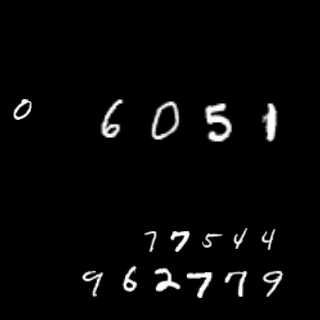 0
6051
77544
962779